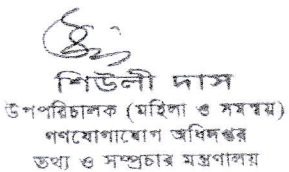 শিউলী দাস
উপপরিচালক (মহিলা ও সমন্বয়)
গণযোগাযোগ অধিদপ্তর
তথ্য ও সম্প্রচার মন্ত্রণালয়